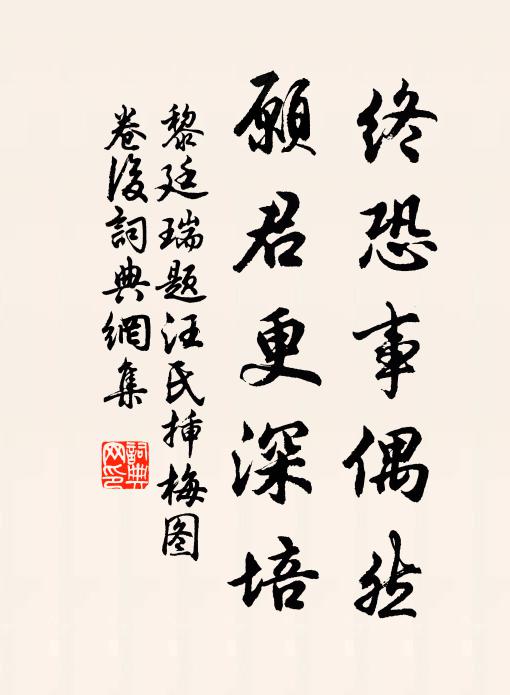 終恐事偶然
願君更深培
黎廷瑞题汪氏插梅图
卷後詞典網集
詞典
网印